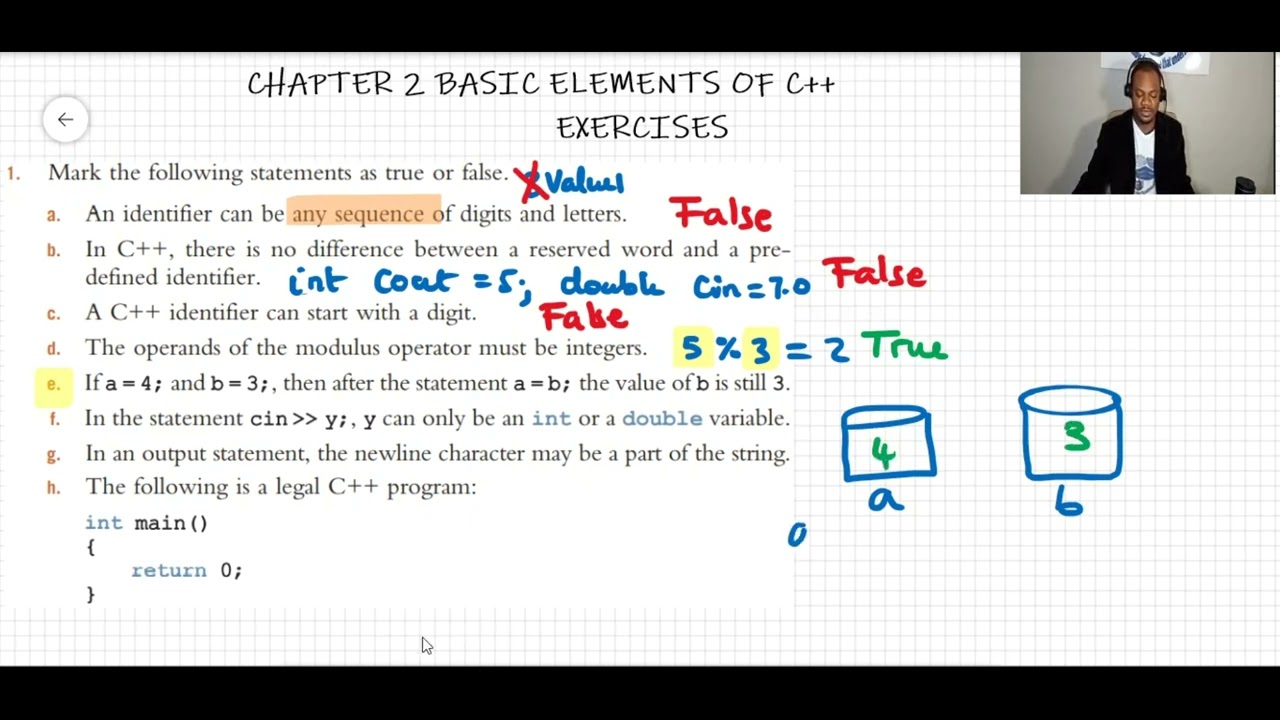 CHAPTER 2 BASIC ELEMENTS OF C++
EXERCISES
1. Mark the following statements as true or false. Values
a. An identifier can be any sequence of digits and letters. False
b. In C++, there is no difference between a reserved word and a pre-
defined identifier. int cout = 5; double cin = 7.0 False
c. A C++ identifier can start with a digit. False
d. The operands of the modulus operator must be integers. 5 % 3 = 2 True
e. If a = 4; and b = 3;, then after the statement a = b; the value of b is still 3.
f. In the statement cin >> y;, y can only be an int or a double variable.
g. In an output statement, the newline character may be a part of the string.
h. The following is a legal C++ program:
int main()
{
return 0;
}
4 3
a b